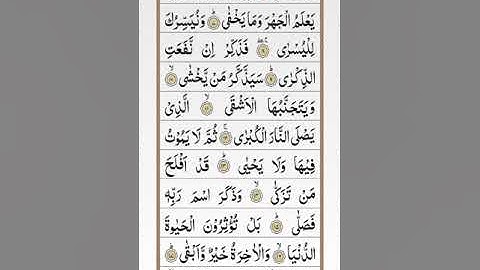 يَعْلَمُ الْجَهْرَ وَمَا يَخْفٰى ۟ؕ وَنُيَسِّرُكَ
لِلْيُسْرٰى ۟ۚۖ فَذَكِّرْ اِنْ نَّفَعَتِ
الذِّكْرٰى ۟ؕ سَيَذَّكَّرُ مَنْ يَّخْشٰى ۟ۙ
وَيَتَجَنَّبُهَا الْاَشْقَى ۟ۙ الَّذِيْ
يَصْلَى النَّارَ الْكُبْرٰى ۟ۚ ثُمَّ لَا يَمُوْتُ
فِيْهَا وَلَا يَحْيٰى ۟ؕ قَدْ اَفْلَحَ
مَنْ تَزَكّٰى ۟ۙ وَذَكَرَ اسْمَ رَبِّهٖ
فَصَلّٰى ۟ؕ بَلْ تُؤْثِرُوْنَ الْحَيٰوةَ
الدُّنْيَا ۟ؗۖ وَالْاٰخِرَةُ خَيْرٌ وَّاَبْقٰى ۟ؕ